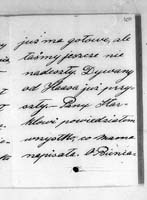 już ma gotowe, ale
taśmy jeszcze nie
nadeszły. Dywany
od Haasa już przy-
szły. Pany Har-
klowi powiedziałam
wszystko, co Mama
napisała. O Binia-